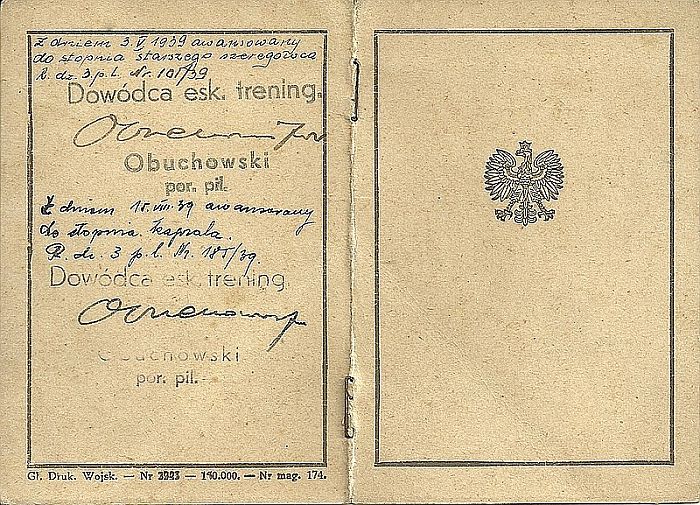 Z dniem 3.V 1939 awansowany
do stopnia starszego szeregowca
R. dz. 3 p.l. Nr. 101/39
Dowódca esk. trening.
Obuchowski
por. pil.
Z dniem 15.VIII.39 awansowany
do stopnia kaprala.
R. dz. 3 p.l. Nr. 185/39.
Dowódca esk. trening.
Obuchowski
por. pil.
Gł. Druk. Wojsk. — Nr — 110.000. — Nr mag. 174.